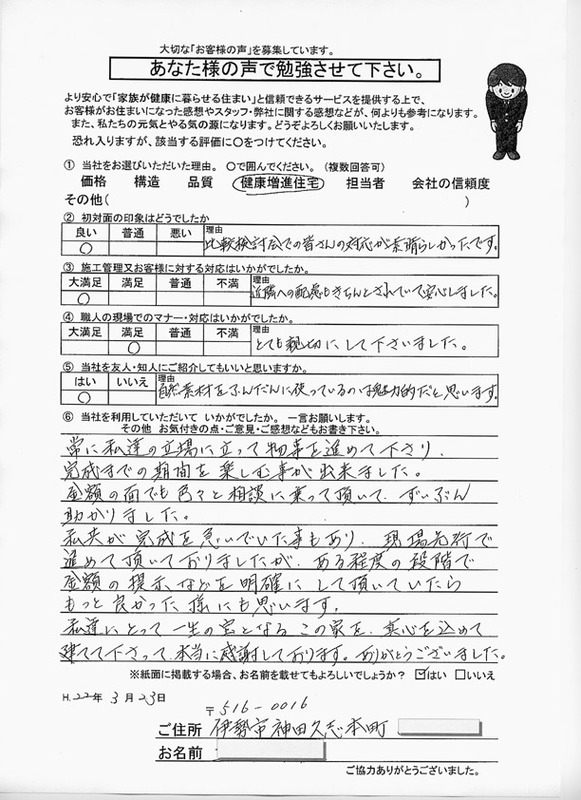 大切な「お客様の声」を募集しています。
あなた様の声で勉強させて下さい。
より安心で「家族が健康に暮らせる住まい」と信頼できるサービスを提供する上で、
お客様がお住まいになった感想やスタッフ・弊社に関する感想などが、何よりも参考になります。
また、私たちの元気とやる気の源になります。どうぞよろしくお願いいたします。
恐れ入りますが、該当する評価に○をつけてください。
① 当社をお選びいただいた理由。 ○で囲んでください。（複数回答可）
価格 構造 品質 健康増進住宅 担当者 会社の信頼度
その他( )
② 初対面の印象はどうでしたか
良い 普通 悪い 理由
○ 比較検討会での皆さんの対応が素晴らしかったです。
③ 施工管理又お客様に対する対応はいかがでしたか。
大満足 満足 普通 不満 理由
○ 近隣への配慮もきちんとされていて安心しました。
④ 職人の現場でのマナー・対応はいかがでしたか。
大満足 満足 普通 不満 理由
○ とても親切にして下さいました。
⑤ 当社を友人・知人にご紹介してもいいと思いますか。
はい いいえ 理由
○ 自然素材をふんだんに使っているのは魅力的だと思います。
⑥ 当社を利用していただいて いかがでしたか。 一言お願いします。
その他 お気付きの点・ご意見・ご感想などもお書き下さい。
常に私達の立場に立って物事を進めて下さり、
完成までの期間を楽しむ事が出来ました。
金額の面でも色々と相談に乗って頂いて、ずいぶん
助かりました。
私共が完成を急いでいた事もあり、現場先行で
進めて頂いておりましたが、ある程度の段階で
金額の提示などを明確にして頂いていたら
もっと良かった様にも思います。
私達にとって一生の宝となるこの家を、真心を込めて
建てて下さって、本当に感謝しております。ありがとうございました。
※紙面に掲載する場合、お名前を載せてもよろしいでしょうか？ ☑はい □いいえ
H.22年 3月 23日
〒516-0016
ご住所 伊勢市神田久志本町
お名前
ご協力ありがとうございました。